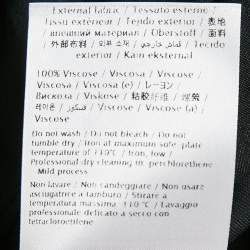 External fabric / Tessuto esterno /
Tissu extérieur / Tejido exterior / 表地
внешний материал / Oberstoff / 面料
外部布料 / 외부 소재 / قماش خارجي / Tecido
exterior / Kain eksternal
100% Viscose / Viscosa / Viscose /
Viscosa / Viscose (e) / レーヨン /
Вискоза / Viskose / 粘胶纤维 / 嫘萦
레이온 / فسكوز / Viscose (a) /
Viscose
Do not wash / Do not bleach / Do not
tumble dry / Iron at maximum sole plate
temperature of 110°C / Iron, low /
Professional dry cleaning in perchlorethene
Mild process
Non lavare / Non candeggiare / Non usare
asciugatura a tamburo / Stirare a
temperatura massima 110°C / Lavaggio
professionale delicato a secco con
tetracloroetilene